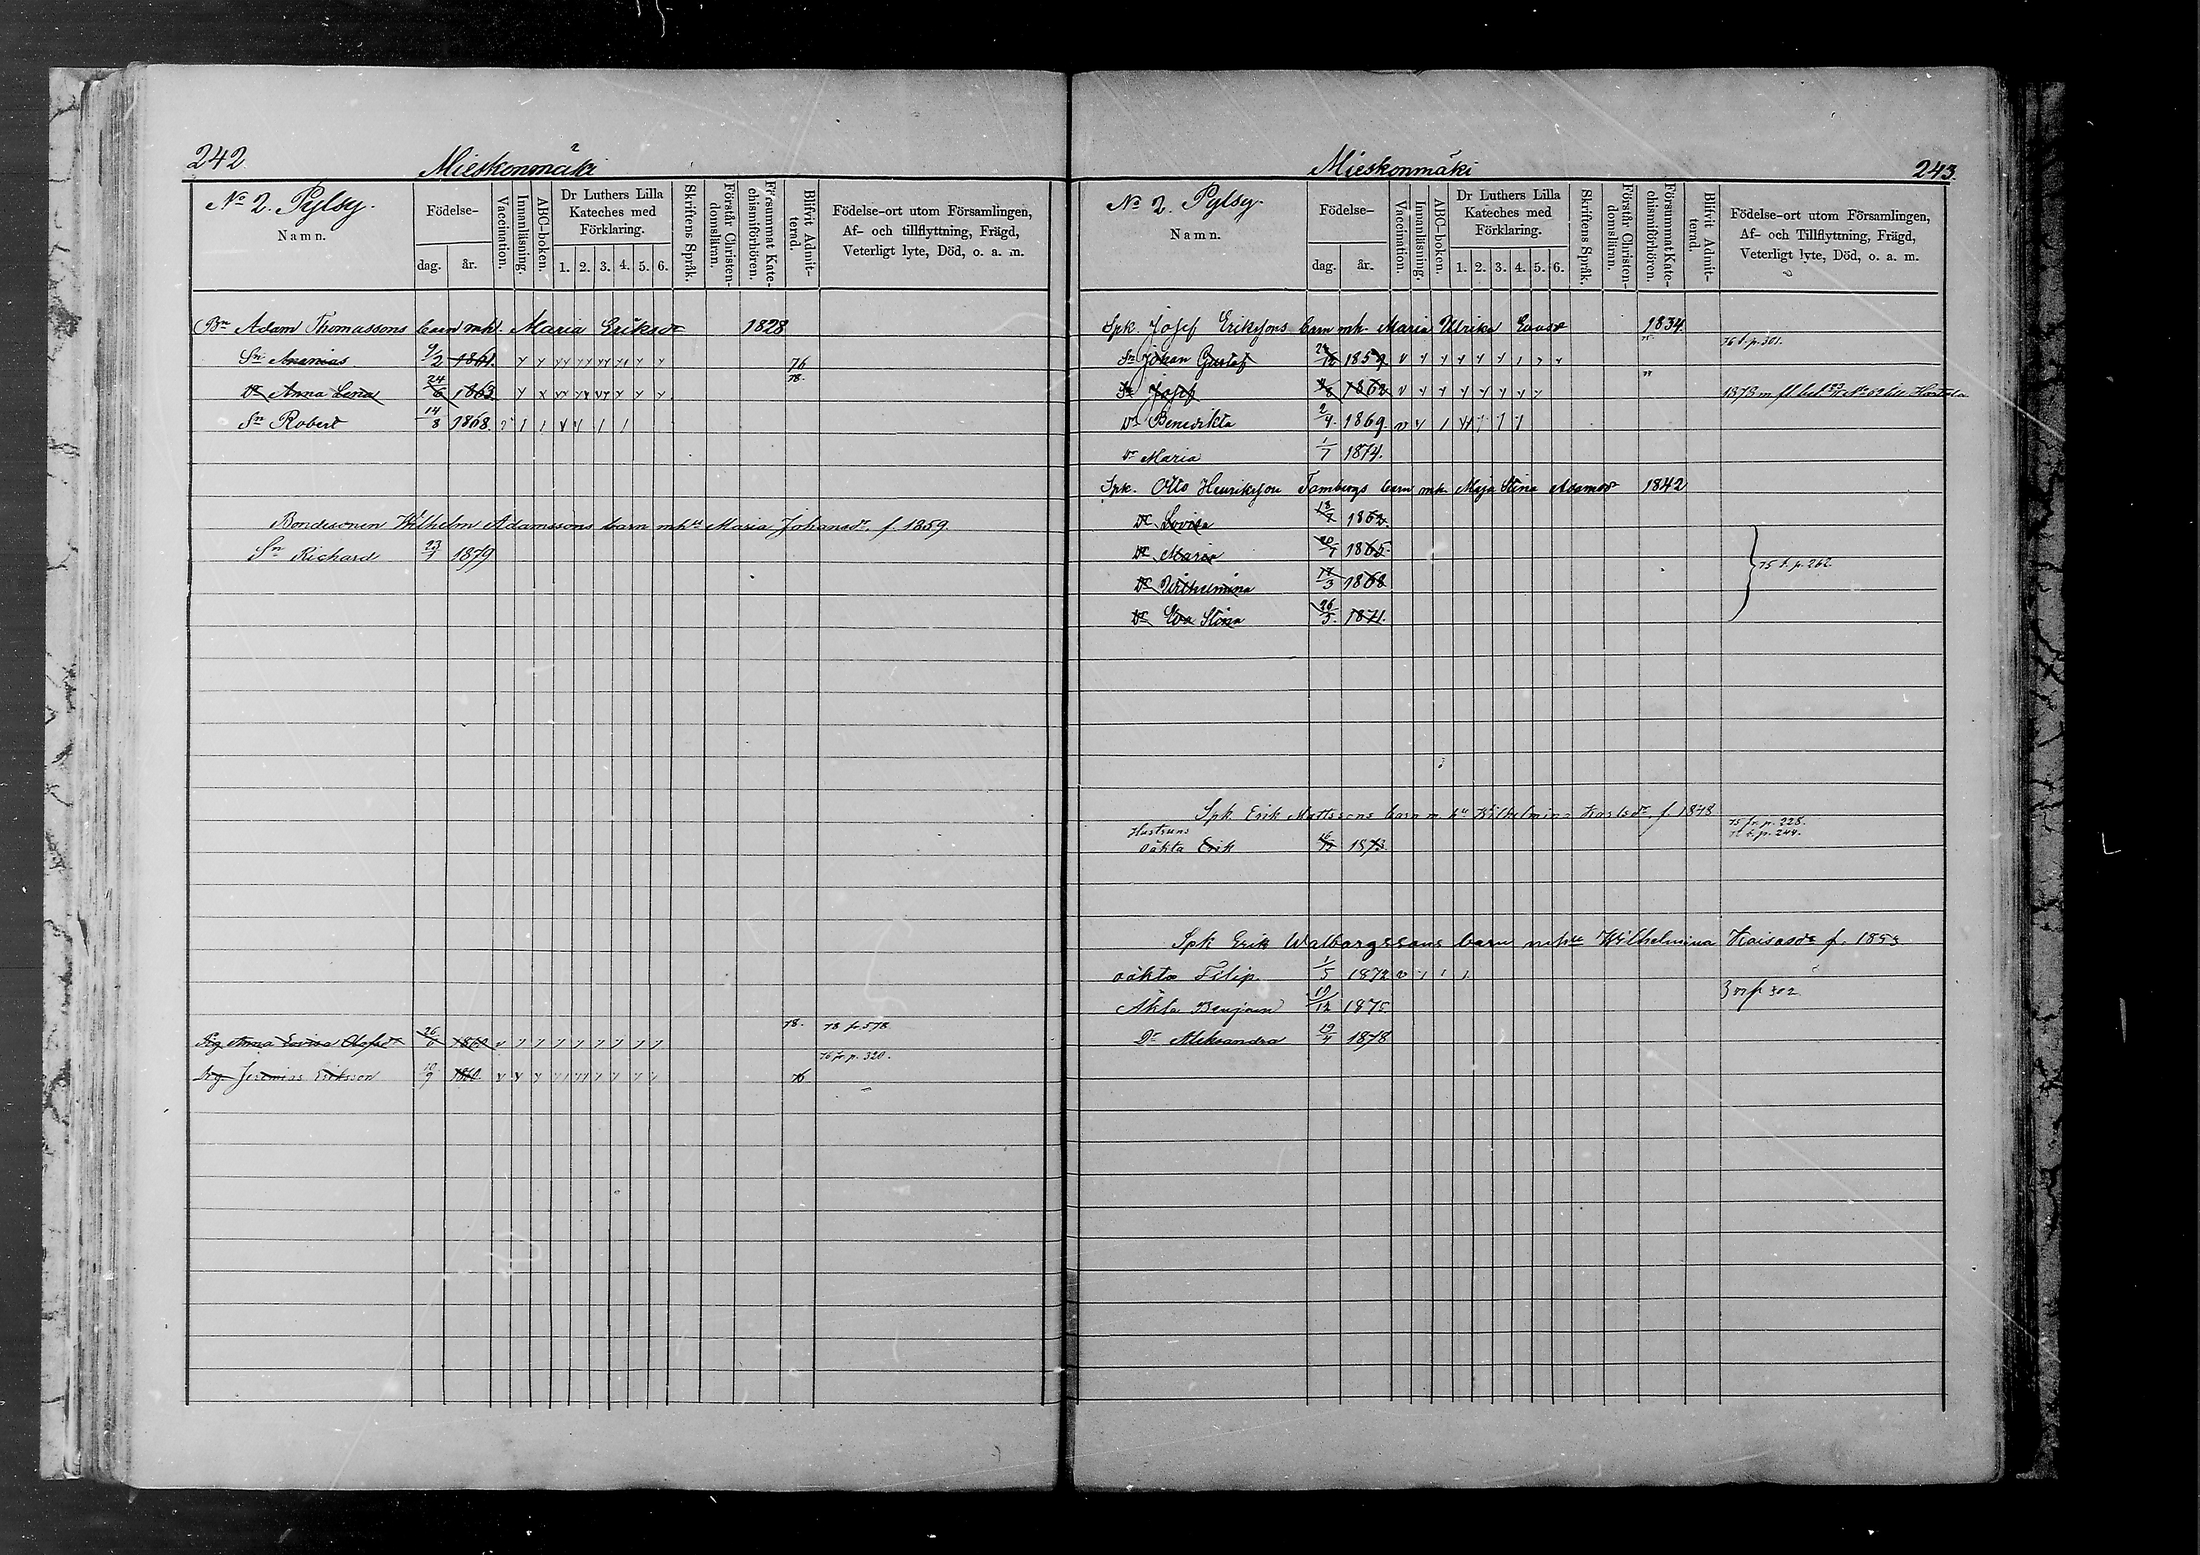 242
Mieskonmäki
No 2. Pylsy.
Namn.
Födelse-
dag.
år.
Vaccination.
Innanläsning.
ABC-boken.
Dr Luthers Lilla Kateches med Förklaring.
1. 2. 3. 4. 5. 6.
Skriftens Språk.
Förstår Christendomsläran.
Försummat Katechismiförhören.
Blifvit Admitterad.
Födelse-ort utom Församlingen, Af- och tillflyttning, Frägd, Veterligt lyte, Död, o. a. m.
Bn Adam Thomassons barn mh. Maria Eriksdr 1828
Sn Ananias 9/2 1861. 76
Dr Anna Lena 24/6 1863 78.
Sn Robert 14/8 1868.
Bondesonen Wilhelm Adamssons barn mh Maria Johansdr, f. 1859.
Sn Richard 23/1 1879
78. 78 fr 578
Pig Anna Lovisa Olofsdr 26/6 1860
76 fr p. 320.
Drg Jeremias Eriksson 10/9 1860 76
243.
Mieskonmäki
No 2. Pylsy.
Namn.
Födelse-
dag.
år.
Vaccination.
Innanläsning.
ABC-boken.
Dr Luthers Lilla Kateches med Förklaring.
1. 2. 3. 4. 5. 6.
Skriftens Språk.
Förstår Christendomsläran.
Försummat Katechismiförhören.
Blifvit Admitterad.
Födelse-ort utom Församlingen, Af- och Tillflyttning, Frägd, Veterligt lyte, Död, o. a. m.
Spk. Josef Eriksons barn mh. Maria Ulrika 1834.
Sn Johan Gustaf 1859. 75 76 t. p. 301.
Sn Josef 1862 1878 m fl. bet.
Dr Benedikta 2/4. 1869.
Dr Maria 1/7 1874.
Spk. Otto Henrikson Tambergs barn mh. Maja Stina Adamsdr 1842
Dr Lovisa 1862.
Dr Maria 20/1 1865.
Dr Wilhelmina 17/3 1868
75 t. p. 262.
Dr Eva Stina 26/5. 1871.
Spk Erik Mattssons barn m. h. Wilhelmina Karlsdr, f. 1848
75 fr. p. 228.
76 t. p. 244.
Hustruns
oäkta Erik 1873
Spk Erik Walborgssons barn mh Wilhelmina Kaisasdr f. 1853
oäkta Filip 1/5 1872
Äkta Benjamin 19/12 1875
Dr Aleksandra 19/4 1878